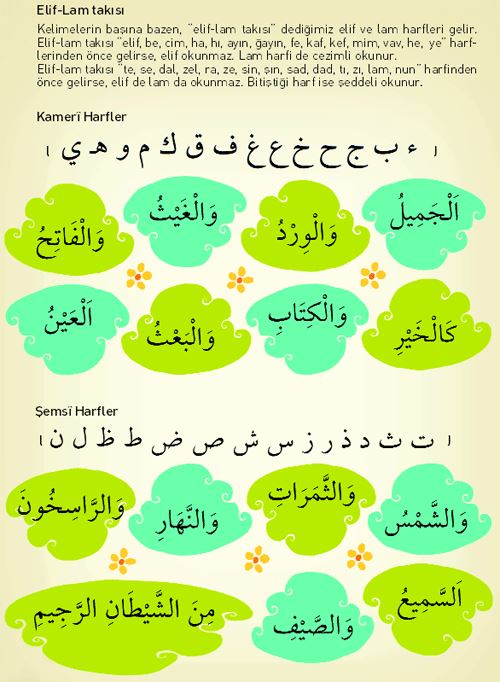 Elif-Lam takısı
Kelimelerin başına bazen, "elif-lam takısı" dediğimiz elif ve lam harfleri gelir.
Elif-lam takısı "elif, be, cim, ha, hı, ayın, ğayın, fe, kaf, kef, mim, vav, he, ye" harf-
lerinden önce gelirse, elif okunmaz. Lam harfi de cezimli okunur.
Elif-lam takısı "te, se, dal, zel, ra, ze, sin, şın, sad, dad, tı, zı, lam, nun" harfinden
önce gelirse, elif de lam da okunmaz. Bitiştiği harf ise şeddeli okunur.
Kamerî Harfler
ا ء ب ج ح خ ع غ ف ق ك م و هـ ي ا
اَلْجَمِيلُ
وَالْوِرْدُ
وَالْغَيْثُ
وَالْفَاتِحُ
كَالْخَيْرِ
وَالْكِتَابِ
وَالْبَعْثُ
اَلْعَيْنُ
Şemsî Harfler
ا ت ث د ذ ر ز س ش ص ض ط ظ ل ن ا
وَالشَّمْسُ
وَالثَّمَرَاتِ
وَالنَّهَارِ
وَالرَّاسِخُونَ
اَلسَّمِيعُ
وَالصَّيْفِ
مِنَ الشَّيْطَانِ الرَّجِيمِ